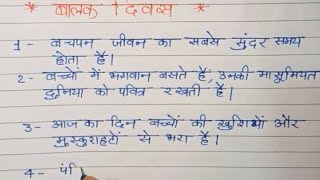 * बालक दिवस *
1 - बचपन जीवन का सबसे सुंदर समय
होता है।
2 - बच्चों में भगवान बसते हैं, उनकी मासूमियत
दुनिया को पवित्र रखती है।
3 - आज का दिन बच्चों की खुशियों और
मुस्कुराहटों से भरा है।
4 - पं